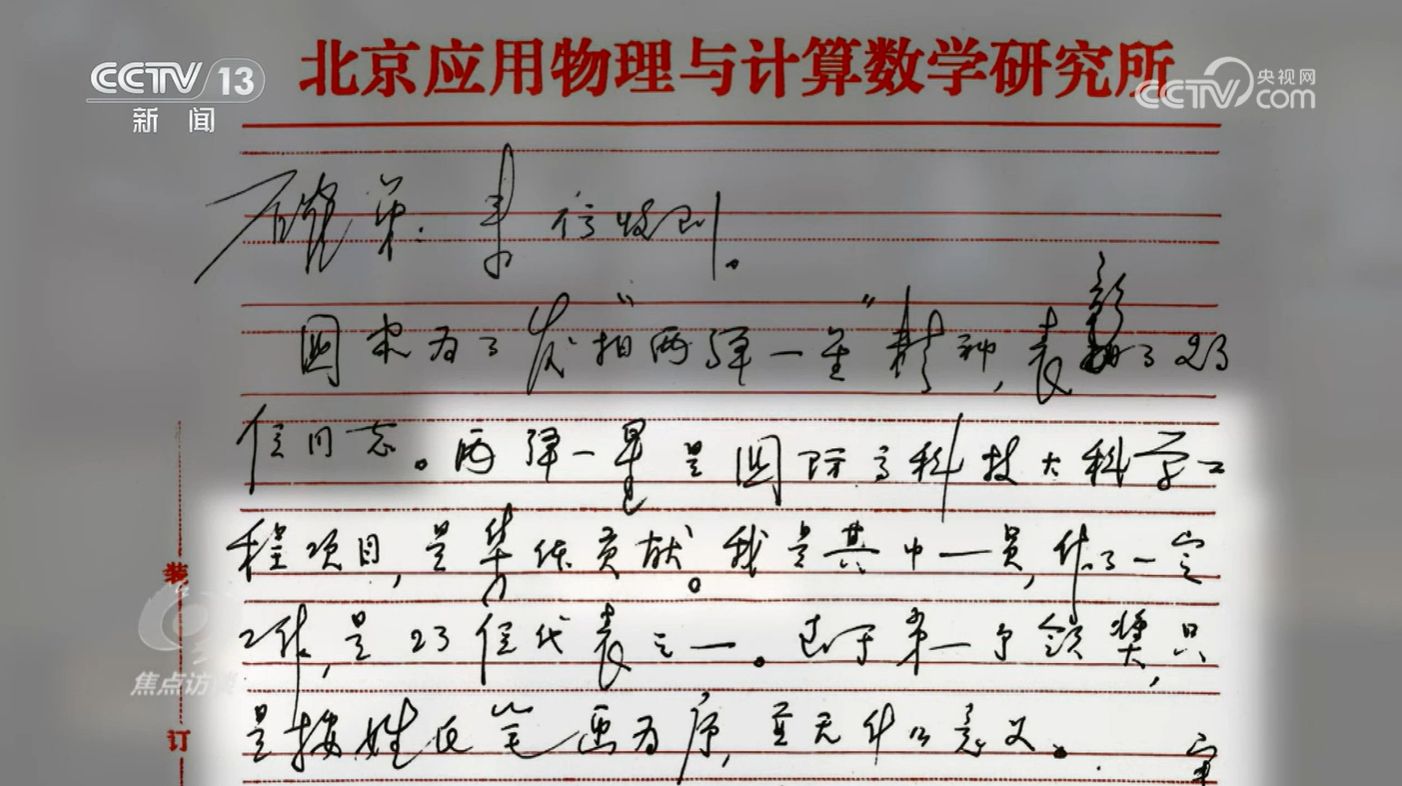 CCTV 13
新闻
北京应用物理与计算数学研究所
央视网
CCTV.com
弟: 来信收到。
国家为了发扬“两弹一星”精神,表彰了23
位同志。两弹一星是国际高科技大科学工
程项目,是集体贡献。我是其中一员,作了一定
工作,是23位代表之一。至于第一个领奖,只
是按姓氏笔画为序,并无什么意义。
装
焦点访谈
订